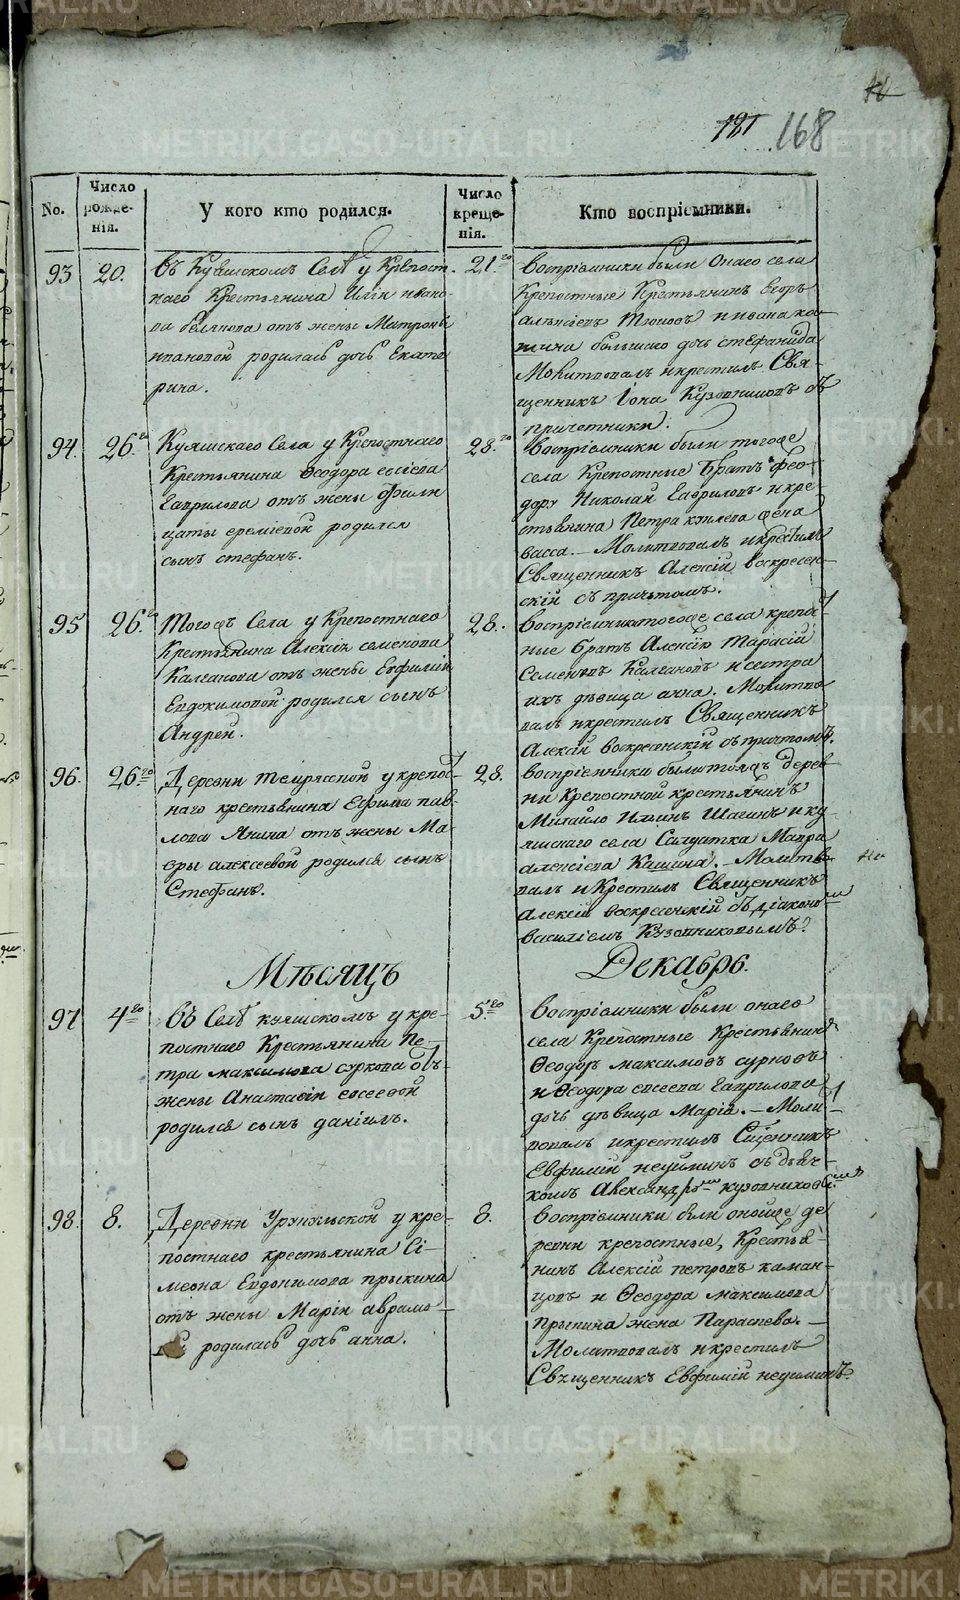 181 168
No.
Число рожде-
нія.
У кого кто родился.
Число
креще-
нія.
Кто воспріемники.
93 20.
Въ Куяшскомъ Селѣ у Крѣпост-
наго Крестьянина Иліи ивано-
ва белякова отъ жены Матроны
ивановой родилась дочь Екате
рина.
21.го
Воспріемники были Онаго села
Крепостные Крестьянинъ Егоръ
и ивана ка-
шина большаго дочь стефанида
Молитвовалъ и крестилъ Свя-
щенникъ Іона Кузовниковъ съ
причетники.
94. 26.го
Куяшскаго Села у Крепостнаго
Крестьянина Ѳеодора евсіева
Гаврилова отъ жены Фили
цаты еремѣевой родился
сынъ стефанъ.
28.го
Воспріемники были тогоже
села Крепостные Братъ Фео-
дору Николай Гавриловъ и кре
стьянина Петра
васса. — Молитвовалъ и крестилъ
Священникъ Алексій воскресен-
скій съ причтомъ.
95 26.го
Тогожъ Села у Крепостнаго
Крестьянина Алексія семенова
Калганова отъ жены Евфиміи
Евдокимовой родился сынъ
Андрей.
28.
Воспріемники тогоже села крепост-
ные братъ Алексію Тарасій
Семеновъ Калгановъ и сестра
ихъ дѣвица анна. Молитво
валъ и крестилъ Священникъ
Алексій воскресенскій съ причтомъ.
96. 26.го
Деревни Тепряской у крепос-
наго крестьянина Ефима пав-
лова Янина отъ жены Ма-
вры алексеевой родился сынъ
Стефанъ.
28.
воспріемники были тояжъ дерев
ни Крепостной крестьянинъ
Михайло Ильинъ Шагинъ и ку-
яшскаго села Салдатка Мавра
алексіева Кашина. — Молитво
валъ и Крестилъ Священникъ
Алексій воскресенскій съ діакономъ
василіемъ Кузовниковымъ.
Мѣсяцъ Декабрь.
97 4го
Въ Селѣ куяшскомъ у кре-
постнаго Крестьянина Пе-
тра максимова суркова отъ
жены Анастасіи евсеевой
родился сынъ даніилъ.
5.го
Воспріемники были онаго
села Крепостные Крестьянинъ
Ѳеодоръ максимовъ сурковъ
и Ѳеодора евсеева Гаврилова
дочь дѣвица Марія. — Молит-
вовалъ и крестилъ Сщенникъ
Евфимій неуйминъ съ дьяч-
комъ Александромъ кузовниковымъ
98. 8.
Деревни Урукульской у кре-
постнаго крестьянина Сі-
меона Евдокимова прыкина
отъ жены Маріи аврамо-
вой родилась дочь анна.
8.
Воспріемники были оной же де
ревни крепостные, Крестья-
нинъ Алексій петровъ каман-
цовъ и Ѳеодора максимова
Прыкина жена Параскева. —
Молитвовалъ и крестилъ
Священникъ Евфимій неуиминъ.
METRIKI.GASO-URAL.RU